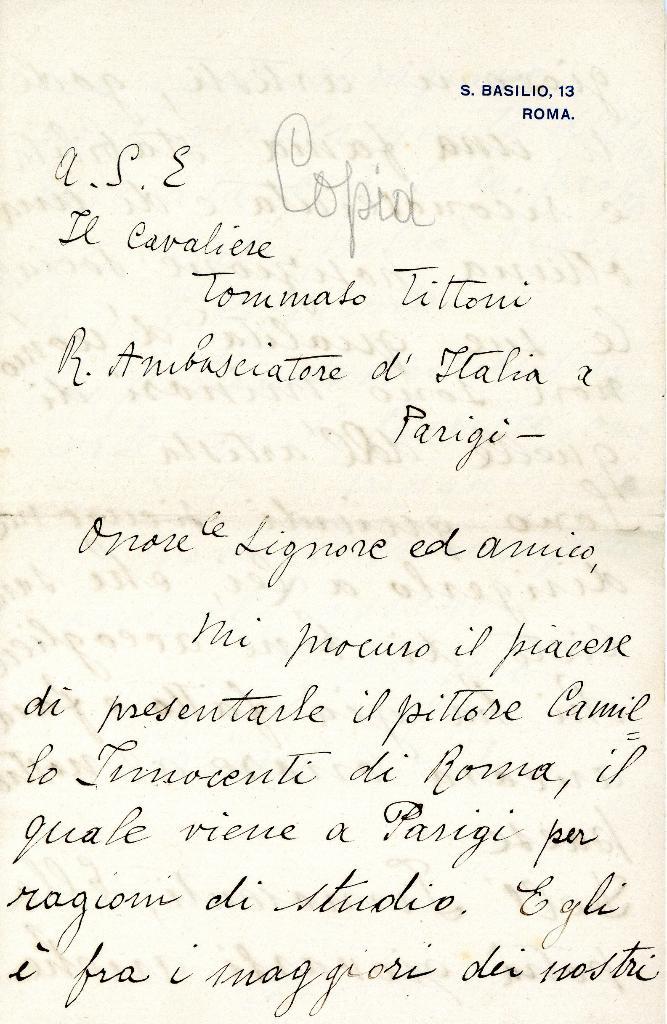 S. BASILIO, 13
ROMA.
Copia
A. S. E
Il Cavaliere
Tommaso Tittoni
R. Ambasciatore d' Italia a
Parigi —
Onore le Signore ed amico,
Mi procuro il piacere
di presentarle il pittore Camil=
lo Innocenti di Roma, il
quale viene a Parigi per
ragioni di studio. Egli
è fra i maggiori dei nostri